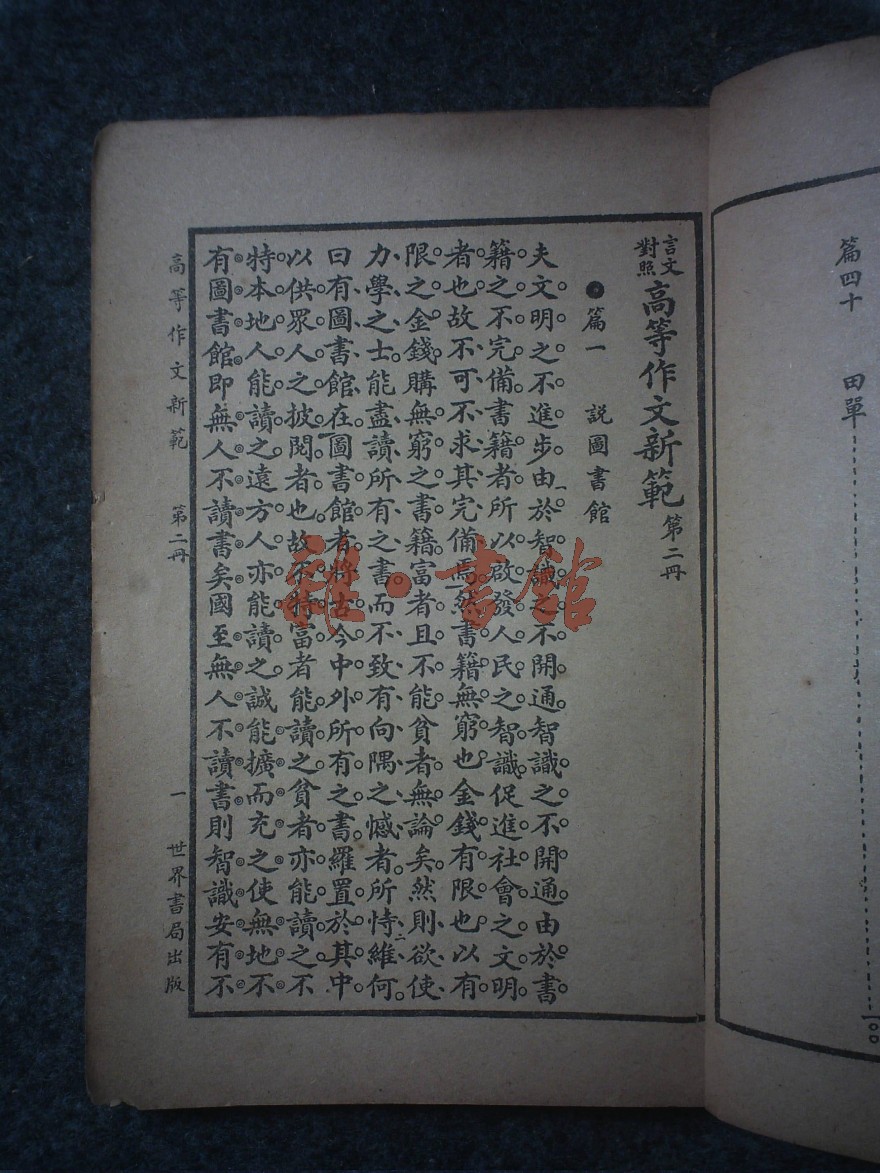 篇四十 田單 一〇〇
言文對照高等作文新範第二冊
篇一 說圖書館
夫文明之不進步由於智識之不開通智識之不開通由於書
籍之不完備書籍者所以啟發人民之智識促進社會之文明
者也故不可不求其完備焉然書籍無窮也金錢有限也以有
限之金錢購無窮之書籍富者且不能貧者無論矣然則欲使
力學之士能盡讀所有之書而不致有向隅之憾者所恃維何
曰有圖書館在圖書館者將古今中外所有之書羅置於其中
以供眾人之披閱者也故不特富者能讀之貧者亦能讀之不
特本地人能讀之遠方人亦能讀之誠能擴而充之使無地不
有圖書館即無人不讀書矣國至無人不讀書則智識安有不
高等作文新範 第二冊 一 世界書局出版
雜·書館